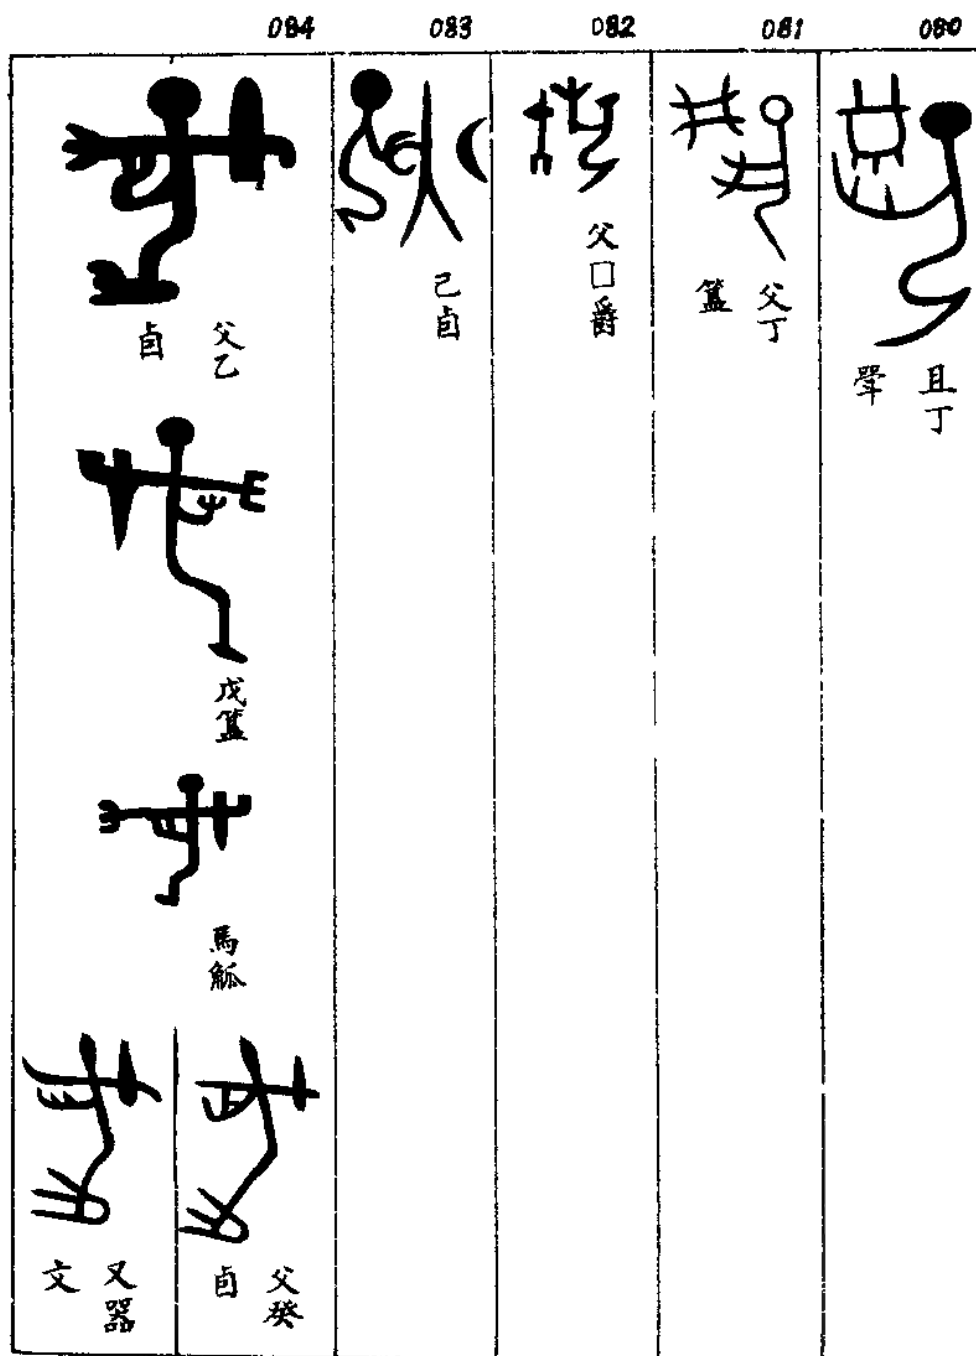 080
且丁
斝
081
父丁
簋
082
父□爵
083
己卣
084
父乙
卣
戊簋
馬觚
父癸
卣
又器
文